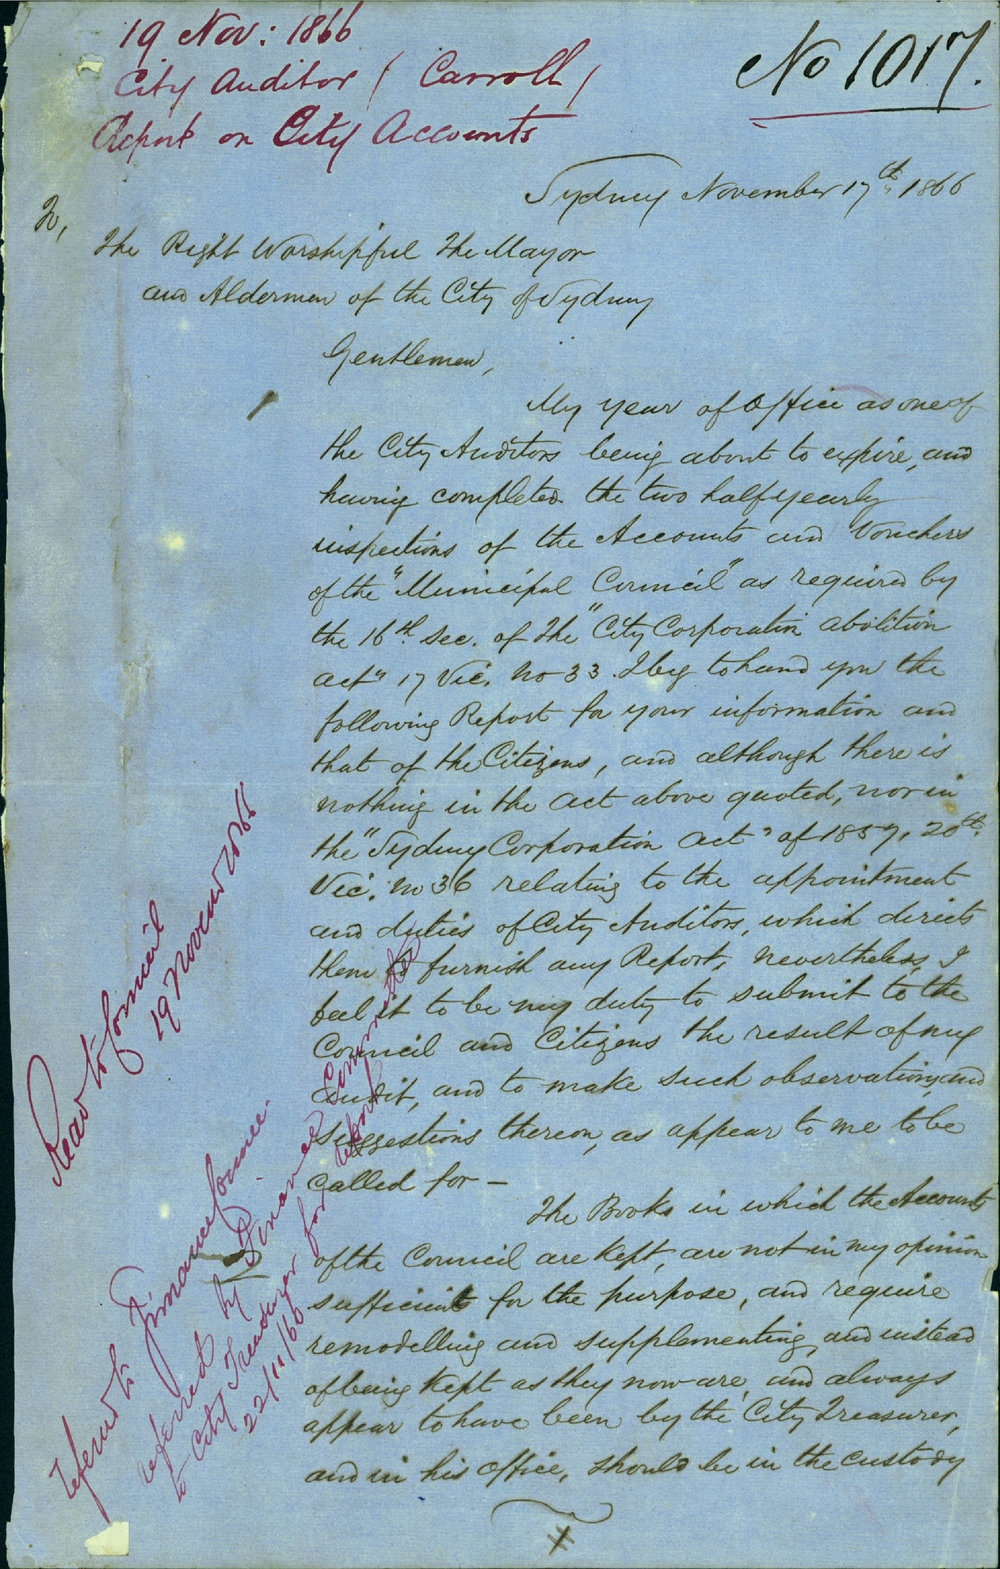 19 Nov: 1866
City Auditor (Carroll)
Report on City Accounts
No 1017.
Sydney November 17th, 1866
To,
The Right Worshipful The Mayor
and Aldermen of the City of Sydney
Gentlemen,
My year of Office as one of
the City Auditors being about to expire, and
having completed the two half yearly
inspections of the Accounts and Vouchers
of the "Municipal Council" as required by
the 16th sec. of The "City Corporation abolition
act" 17 Vic. No 33. I beg to hand you the
following Report for your information and
that of the Citizens, and although there is
nothing in the act above quoted, nor in
the "Sydney Corporation act" of 1857, 20th
Vic. No 36 relating to the appointment
and duties of City Auditors, which directs
them to furnish any Report, nevertheless, I
feel it to be my duty to submit to the
Council and Citizens the result of my
audit, and to make such observations, and
suggestions thereon, as appear to me to be
called for —
The Books in which the Accounts
of the Council are kept, are not in my opinion
sufficient for the purpose, and require
remodelling and supplementing, and instead
of being kept as they now are, and always
appear to have been by the City Treasurer,
and in his office, should be in the custody
Read to Council
19 November 1866
Referred to Finance Comee.
referred by Finance Committee
to City Treasurer for report
22/11/66